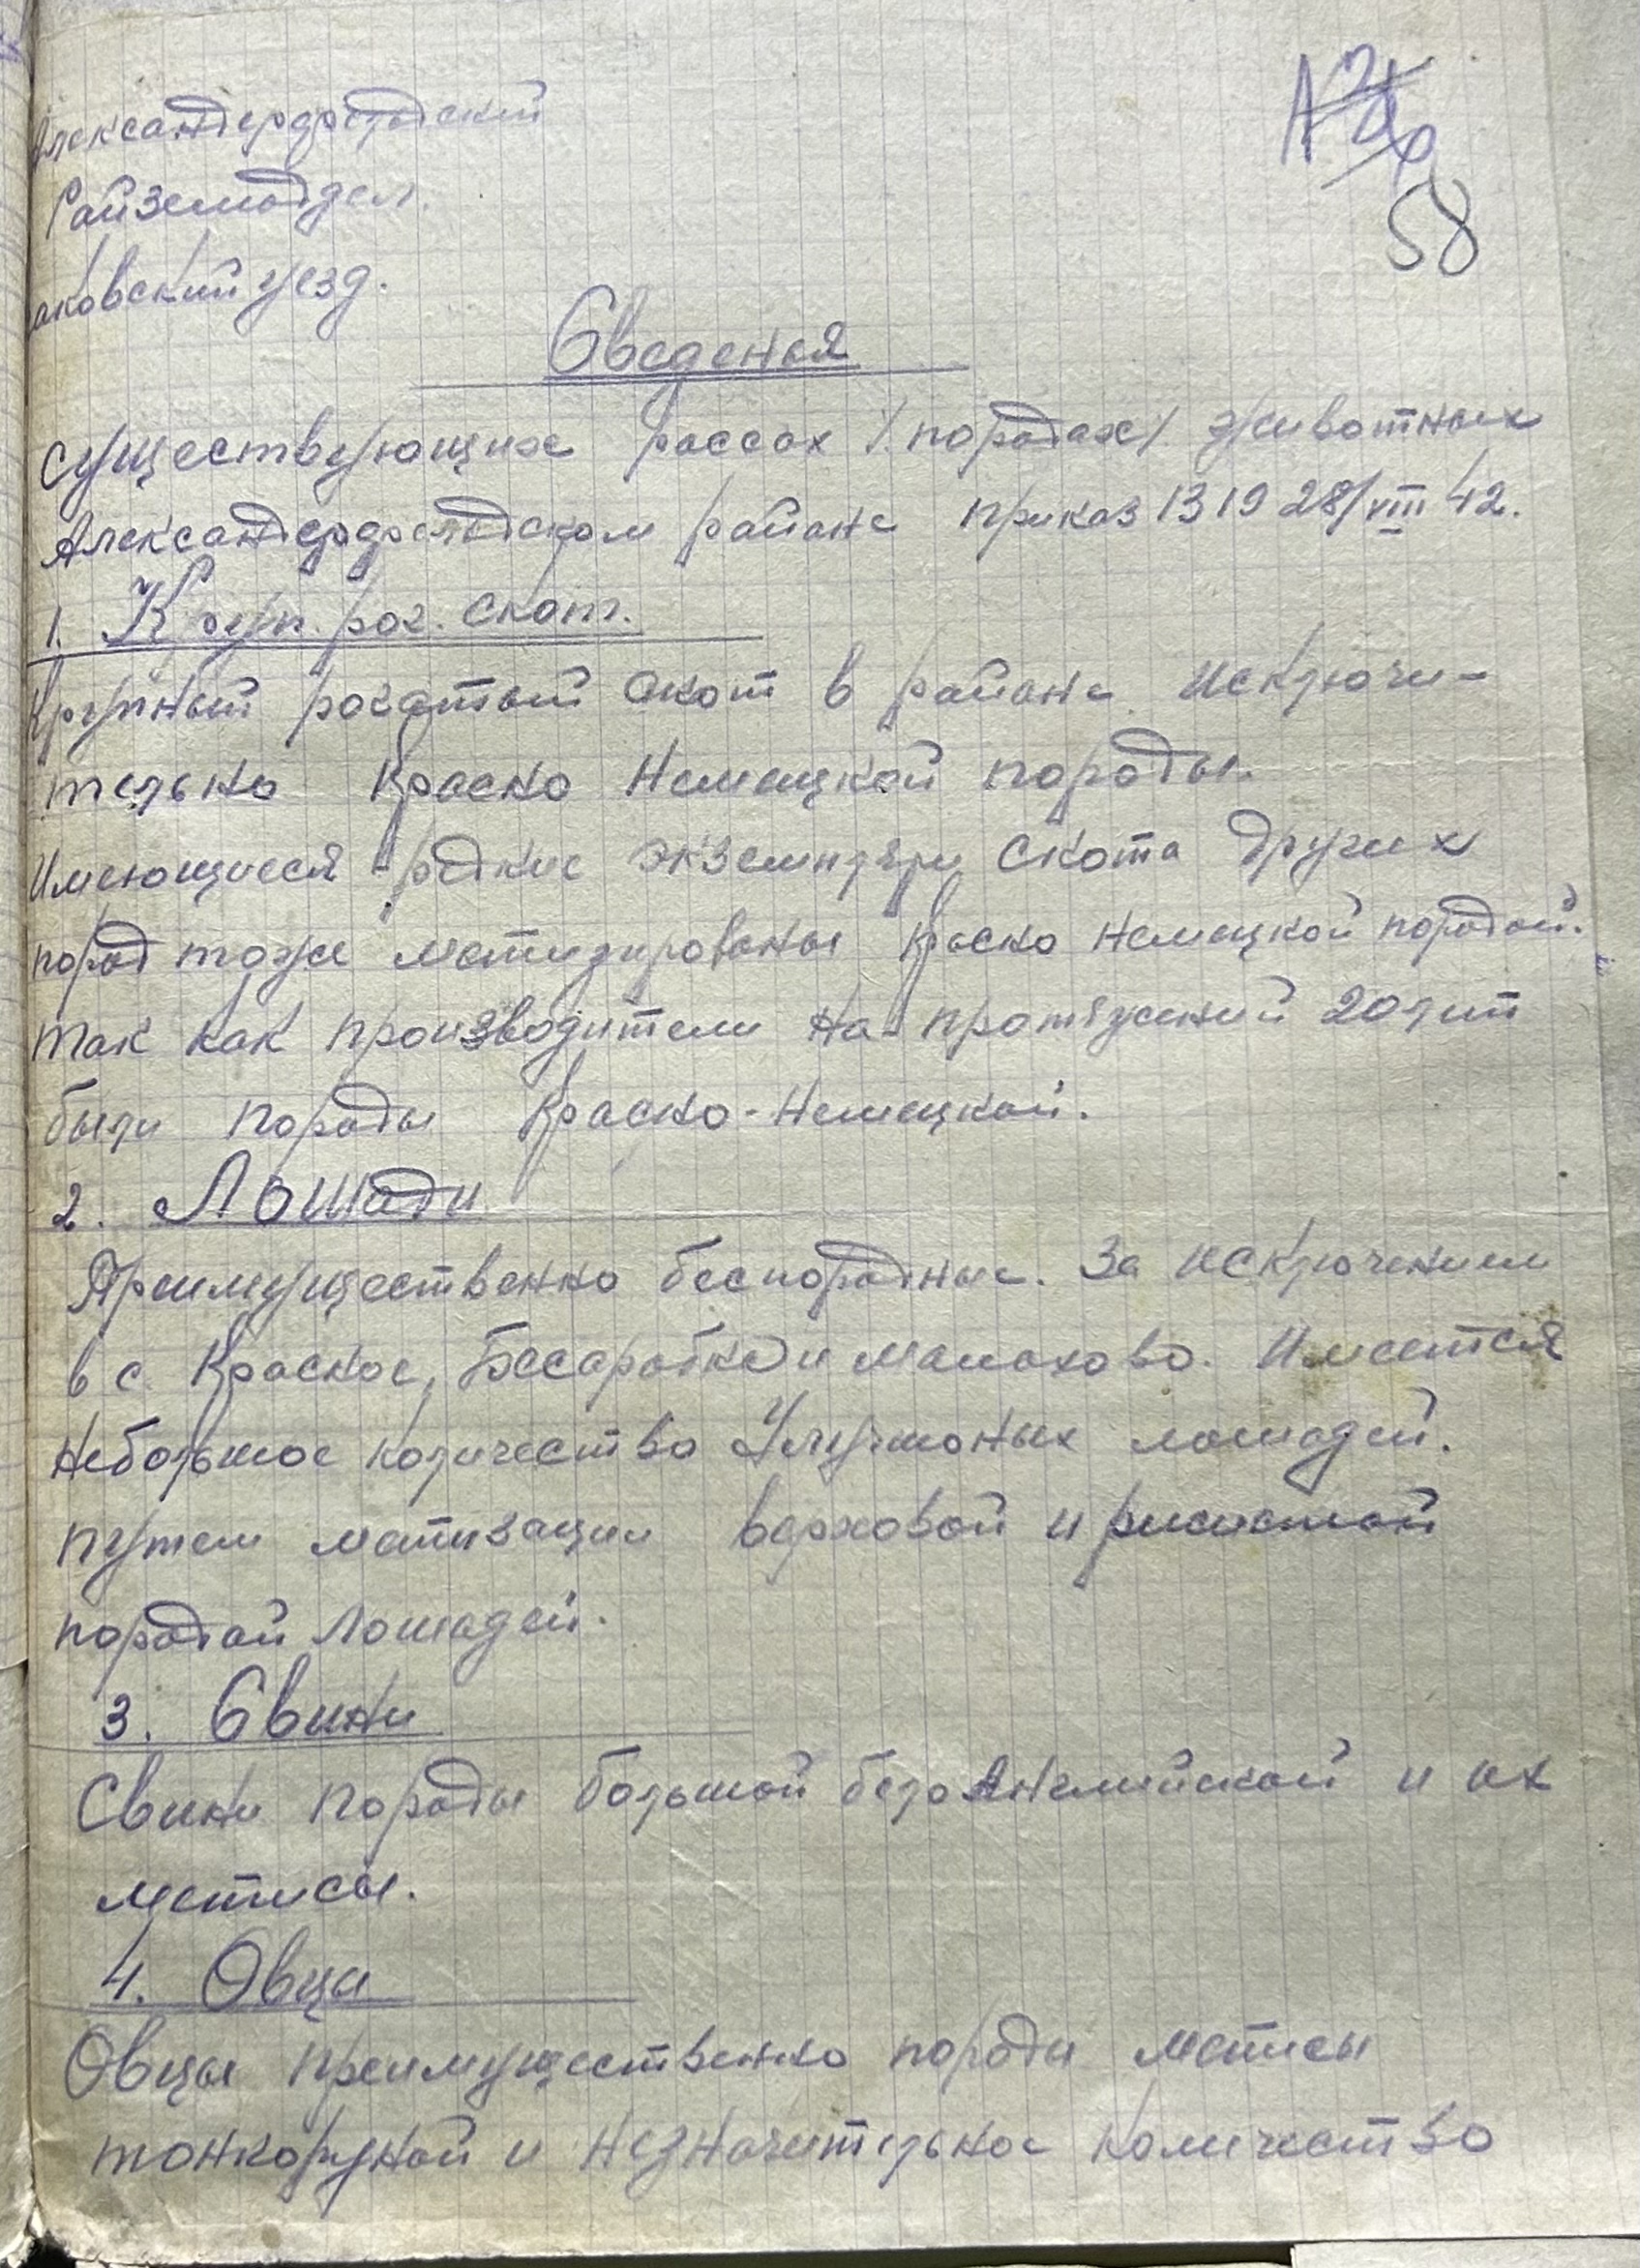 Александерфельдский
Райземотдел.
аковский уезд.
58
Сведенья
существующих рассах /породах/ животных
Александерфельдском районе приказ 1319 28/VIII 42.
1. Круп. рог. скот.
Крупный рогатый скот в районе исключи-
тельно Красно Немецкой породы.
Имеющиеся редкие экземпляры скота других
пород тоже метизированы Красно Немецкой породой.
так как производители на протяжений 20 лет
были породы Красно-Немецкой.
2. Лошади
Преимущественно беспородные. За исключением
в с. Красное, Бесарабка и Малахово. Имеется
небольшое количество Улучшоных лошадей.
путем метизации верховой и рысистой
породой Лошадей.
3. Свини
Свини породы большой бело Английской и их
метисы.
4. Овца
Овцы преимущественно породы метисы
тонкоруной и незначительное количество